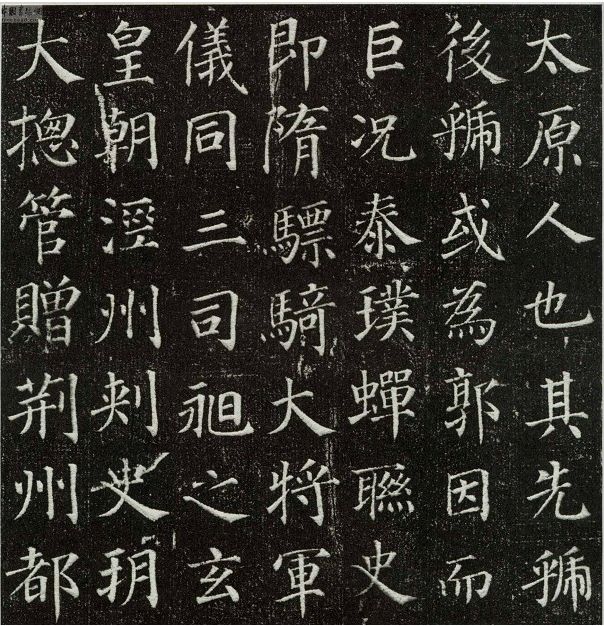 太原人也其先虢
後虢或為郭因而
巨况泰璞蟬聯史
即隋驃騎大將軍
儀同三司昶之玄
皇朝涇州刺史玥
大摠管贈荊州都